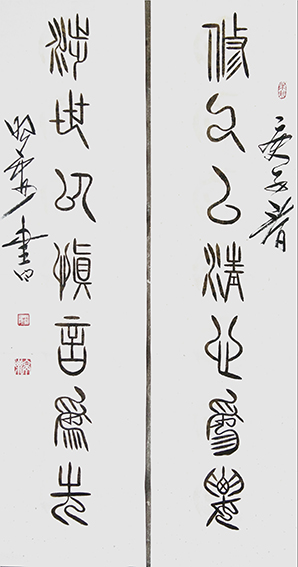 庚子春
修己以清心為要
涉世以慎言為先
書